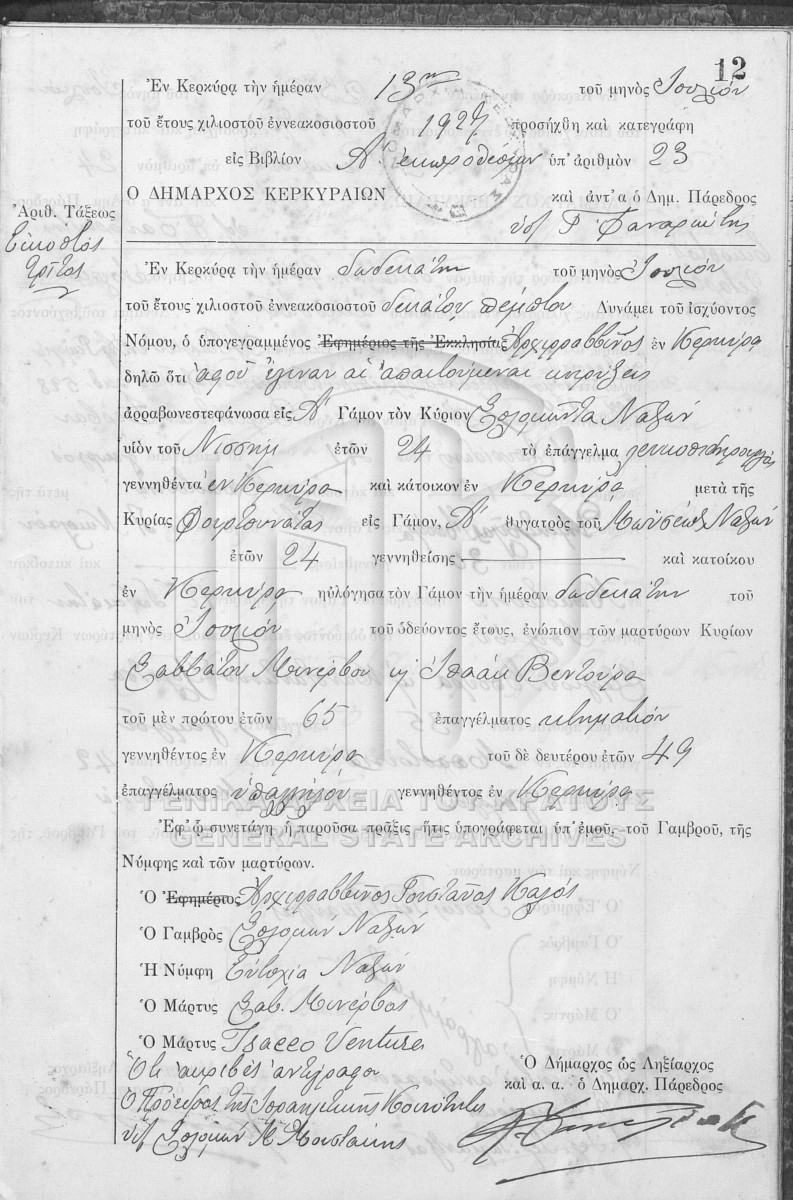 12
Ἐν Κερκύρᾳ τὴν ἡμέραν 13ην τοῦ μηνὸς Ἰουλίου
τοῦ ἔτους χιλιοστοῦ ἐννεακοσιοστοῦ 1927 προσήχθη καὶ κατεγράφη
εἰς Βιβλίον Α. ὑπ' ἀριθμὸν 23
Ο ΔΗΜΑΡΧΟΣ ΚΕΡΚΥΡΑΙΩΝ καὶ ἀντ' α ὁ Δημ. Πάρεδρος
Ἀριθ. Τάξεως
Εἰκοστὸς
τρίτος
Ἐν Κερκύρᾳ τὴν ἡμέραν δωδεκάτην τοῦ μηνὸς Ἰουλίου
τοῦ ἔτους χιλιοστοῦ ἐννεακοσιοστοῦ δεκάτου πέμπτου Δυνάμει τοῦ ἰσχύοντος
Νόμου, ὁ ὑπογεγραμμένος Ἐφημέριος τῆς Ἐκκλησίας Ἀρχιρραββῖνος ἐν Κερκύρᾳ
δηλῶ ὅτι ἀφοῦ ἔγιναν αἱ ἀπαιτούμεναι κηρύξεις
ἀρραβωνεστεφάνωσα εἰς Α' Γάμον τὸν Κύριον Σολομῶντα Ναζὼν
υἱὸν τοῦ Νισσὴμ ἐτῶν 24 τὸ ἐπάγγελμα
γεννηθέντα ἐν Κερκύρᾳ καὶ κάτοικον ἐν Κερκύρᾳ μετὰ τῆς
Κυρίας Φουρτουνάτας εἰς Γάμον, Α' θυγατρὸς τοῦ Μωϋσέως Ναζὼν
ἐτῶν 24 γεννηθείσης — καὶ κατοίκου
ἐν Κερκύρᾳ ηὐλόγησα τὸν Γάμον τὴν ἡμέραν δωδεκάτην τοῦ
μηνὸς Ἰουλίου τοῦ ὁδεύοντος ἔτους, ἐνώπιον τῶν μαρτύρων Κυρίων
Σαββάτου Μινέρβου κ Ἰσαὰκ Βεντούρα
τοῦ μὲν πρώτου ἐτῶν 65 ἐπαγγέλματος κτηματίου
γεννηθέντος ἐν Κερκύρᾳ τοῦ δὲ δευτέρου ἐτῶν 49
ἐπαγγέλματος ὑπαλλήλου γεννηθέντος ἐν Κερκύρᾳ
ΓΕΝΙΚΑ ΑΡΧΕΙΑ ΤΟΥ ΚΡΑΤΟΥΣ
Ἐφ' ᾧ συνετάγη ἡ παροῦσα πρᾶξις ἥτις ὑπογράφεται ὑπ' ἐμοῦ, τοῦ Γαμβροῦ, τῆς
GENERAL STATE ARCHIVES
Νύμφης καὶ τῶν μαρτύρων.
Ὁ Ἐφημέριος Ἀρχιρραββῖνος
Ὁ Γαμβρὸς Σολομὼν Ναζὼν
Ἡ Νύμφη Εὐτυχία Ναζὼν
Ὁ Μάρτυς Σαβ. Μινέρβος
Ὁ Μάρτυς Isacco Ventura
Ὅτι ἀκριβὲς ἀντίγραφον
Ὁ Δήμαρχος ὡς Ληξίαρχος
καὶ α. α. ὁ Δημαρχ. Πάρεδρος
Ὁ Πρόεδρος τῆς Ἰσραηλιτικῆς Κοινότητος